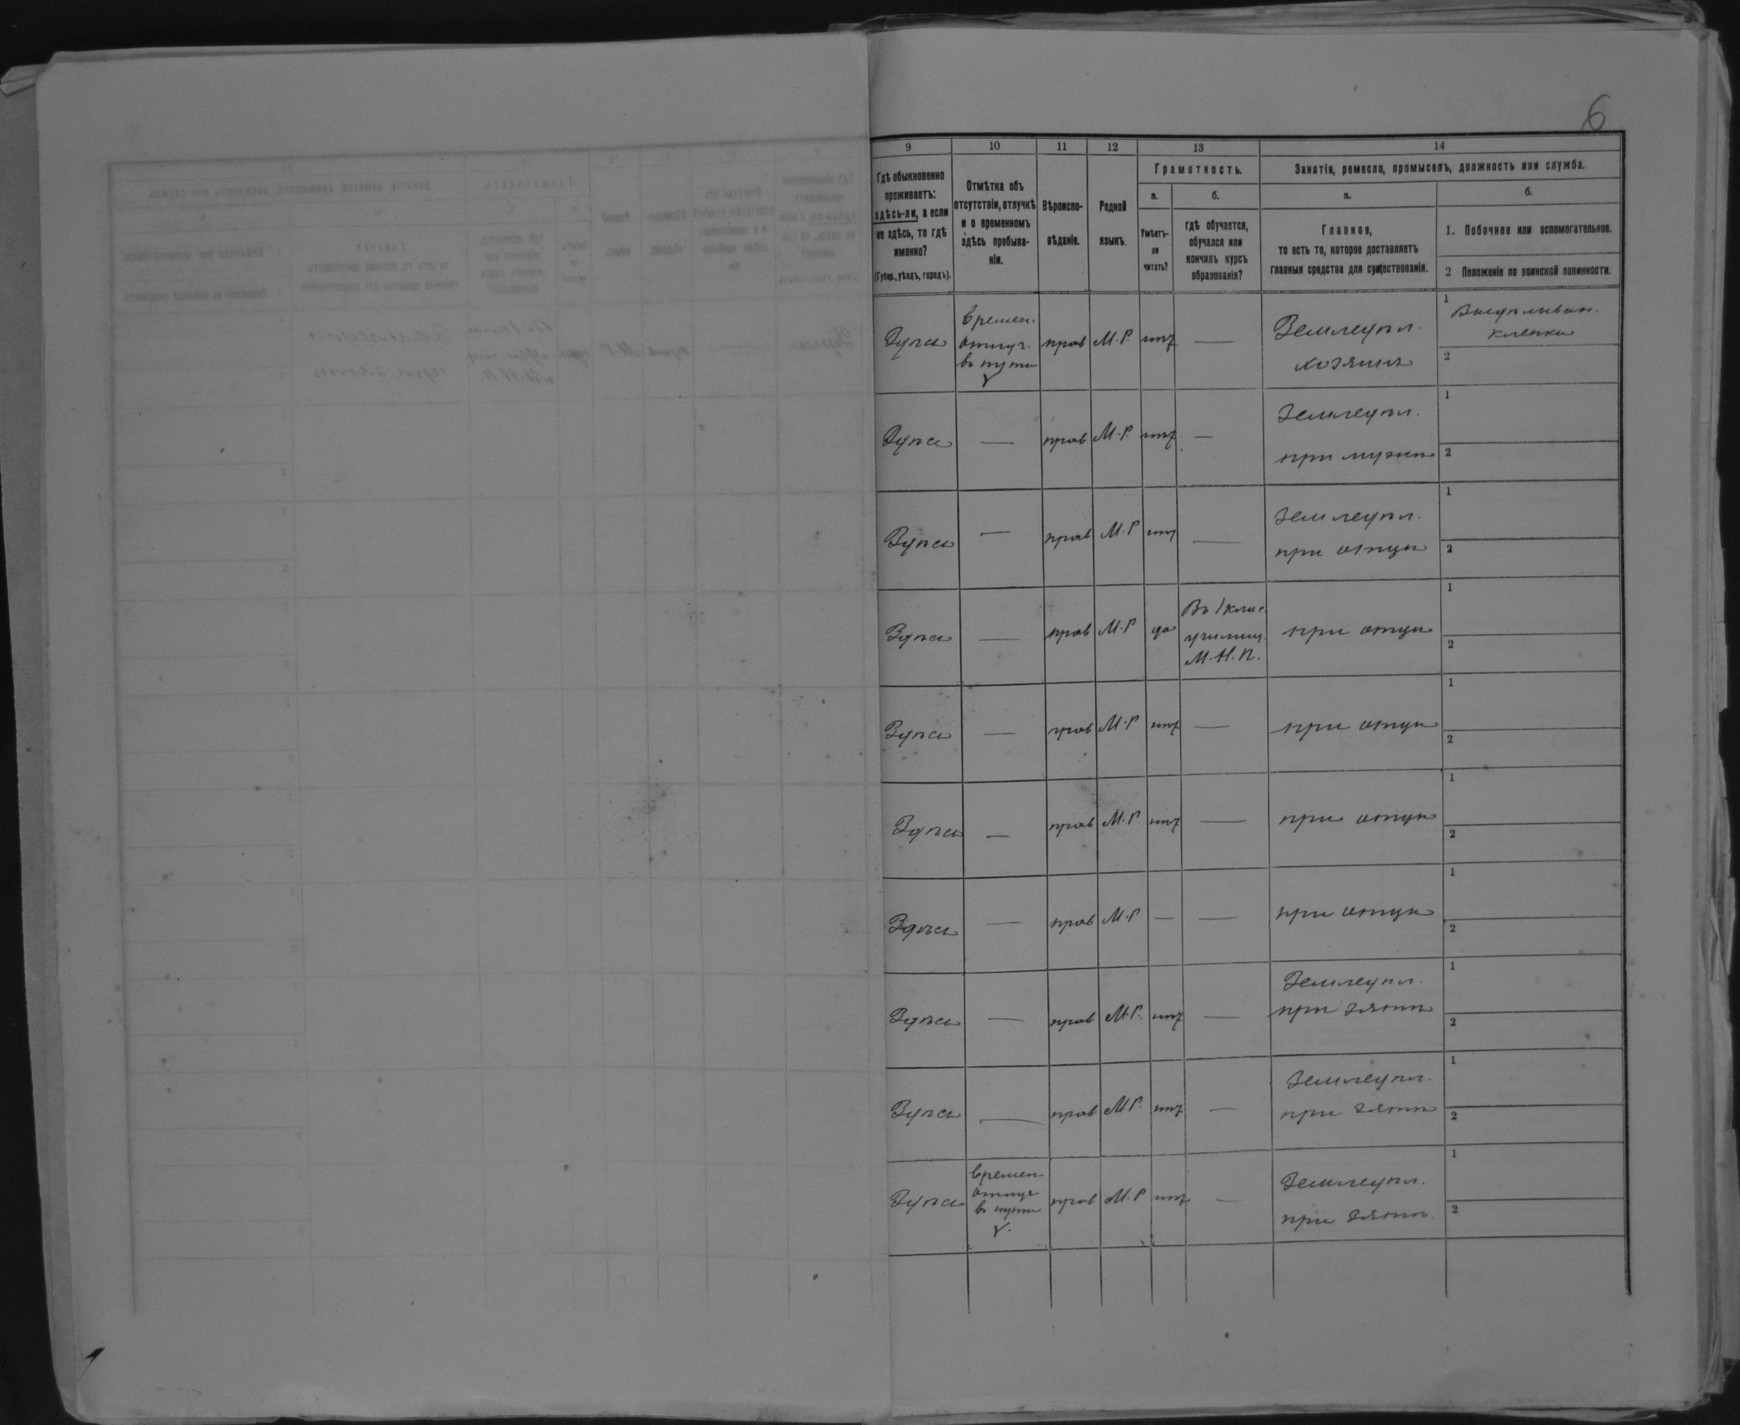 6
9 10 11 12 13 14
Гдѣ обыкновенно
проживаетъ:
здѣсь-ли, а если
не здѣсь, то гдѣ
именно?
(Губер., уѣздъ, городъ).
Отмѣтка объ
отсутствіи, отлучкѣ
и о временномъ
здѣсь пребыва-
ніи.
Вѣроиспо-
вѣданіе.
Родной
языкъ.
Грамотность.
а.
Умѣетъ-
ли
читать?
б.
Гдѣ обучается,
обучался или
кончилъ курсъ
образованія?
Занятіе, ремесло, промыселъ, должность или служба.
а.
Главное,
то есть то, которое доставляетъ
главныя средства для существованія.
б.
1. Побочное или вспомогательное.
2 Положеніе по воинской повинности.
Здѣсь
времен.
отлуч.
въ пути
прав
М.Р.
нѣт
—
Земледѣл.
хозяинъ
1
клепки
2
Здѣсь
—
прав
М.Р.
нѣт
—
Земледѣл.
при мужѣ
1
2
Здѣсь
—
прав
М.Р
нѣт
—
Земледѣл.
при отцѣ
1
2
Здѣсь
—
прав
М.Р
да
Въ 1 клас.
училищ.
М.Н.П.
при отцѣ
1
2
Здѣсь
—
прав
М.Р
нѣт
—
при отцѣ
1
2
Здѣсь
—
прав
М.Р.
нѣт
—
при отцѣ
1
2
Здѣсь
—
прав
М.Р
—
—
при отцѣ
1
2
Здѣсь
—
прав
М.Р.
нѣт
—
Земледѣл.
при зятѣ
1
2
Здѣсь
—
прав
М.Р.
нѣт
—
Земледѣл.
при зятѣ
1
2
Здѣсь
времен
отлуч
въ пути
прав
М.Р
нѣт
—
Земледѣл.
при зятѣ.
1
2